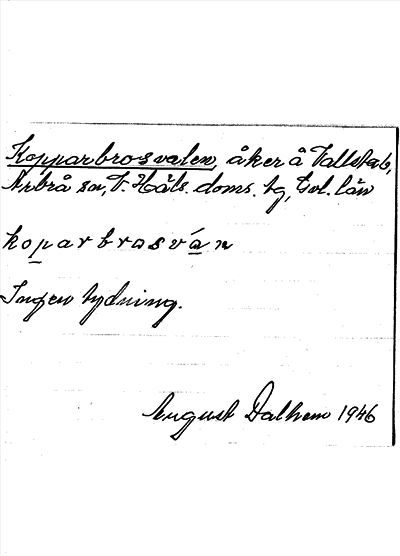 Kopparbrosvalen, åker å Vallstab,
Arbrå sn, V. Häls. doms. tg, Gvl. län
koparbrasván
Ingen tydning.
August Dalhem 1946